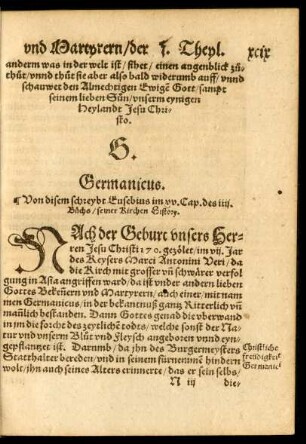 vnd Martyrern/der j. Theyl. xcix
anderm was in der welt ist/sihet/einen augenblick zů-
thůt/vnnd thůt sie aber also bald widerumb auff/vnnd
schauwet den Almechtigen Ewigē Gott/sampt
seinem lieben Sůn/vnserm eynigen
Heylandt Jesu Chri-
sto.
G.
Germanicus.
¶ Von disem schreybt Eusebius im xv. Cap. des iiij.
Bůchs/seiner Kirchen History.
NAch der Geburt vnsers Her-
ren Jesu Christi 170. gezölet/im vij. Jar
des Keysers Marci Antonini Veri/da
die Kirch mit grosser vñ schwärer verfol
gung in Asia angriffen ward/da ist vnder andern lieben
Gottes Bekeñern vnd Martyrern/auch einer/mit nam
men Germanicus/in der bekantnuß gantz Ritterlich vñ
mañlich bestanden. Dann Gottes genad die vberwand
in jm die forchte des zeytlichē todts/welche sonst der Na-
tur vnd vnserm Blůt vnd Fleysch angeboren vnnd eyn-
gepflantzet ist. Darumb/da jhn des Burgermeysters
Statthalter bereden/vnd in seinem fürnemmē hindern
wolt/jhn auch seines Alters erinnerte/das er sein selbs/
Christliche
freudigkeit
Germanici
N iij die-